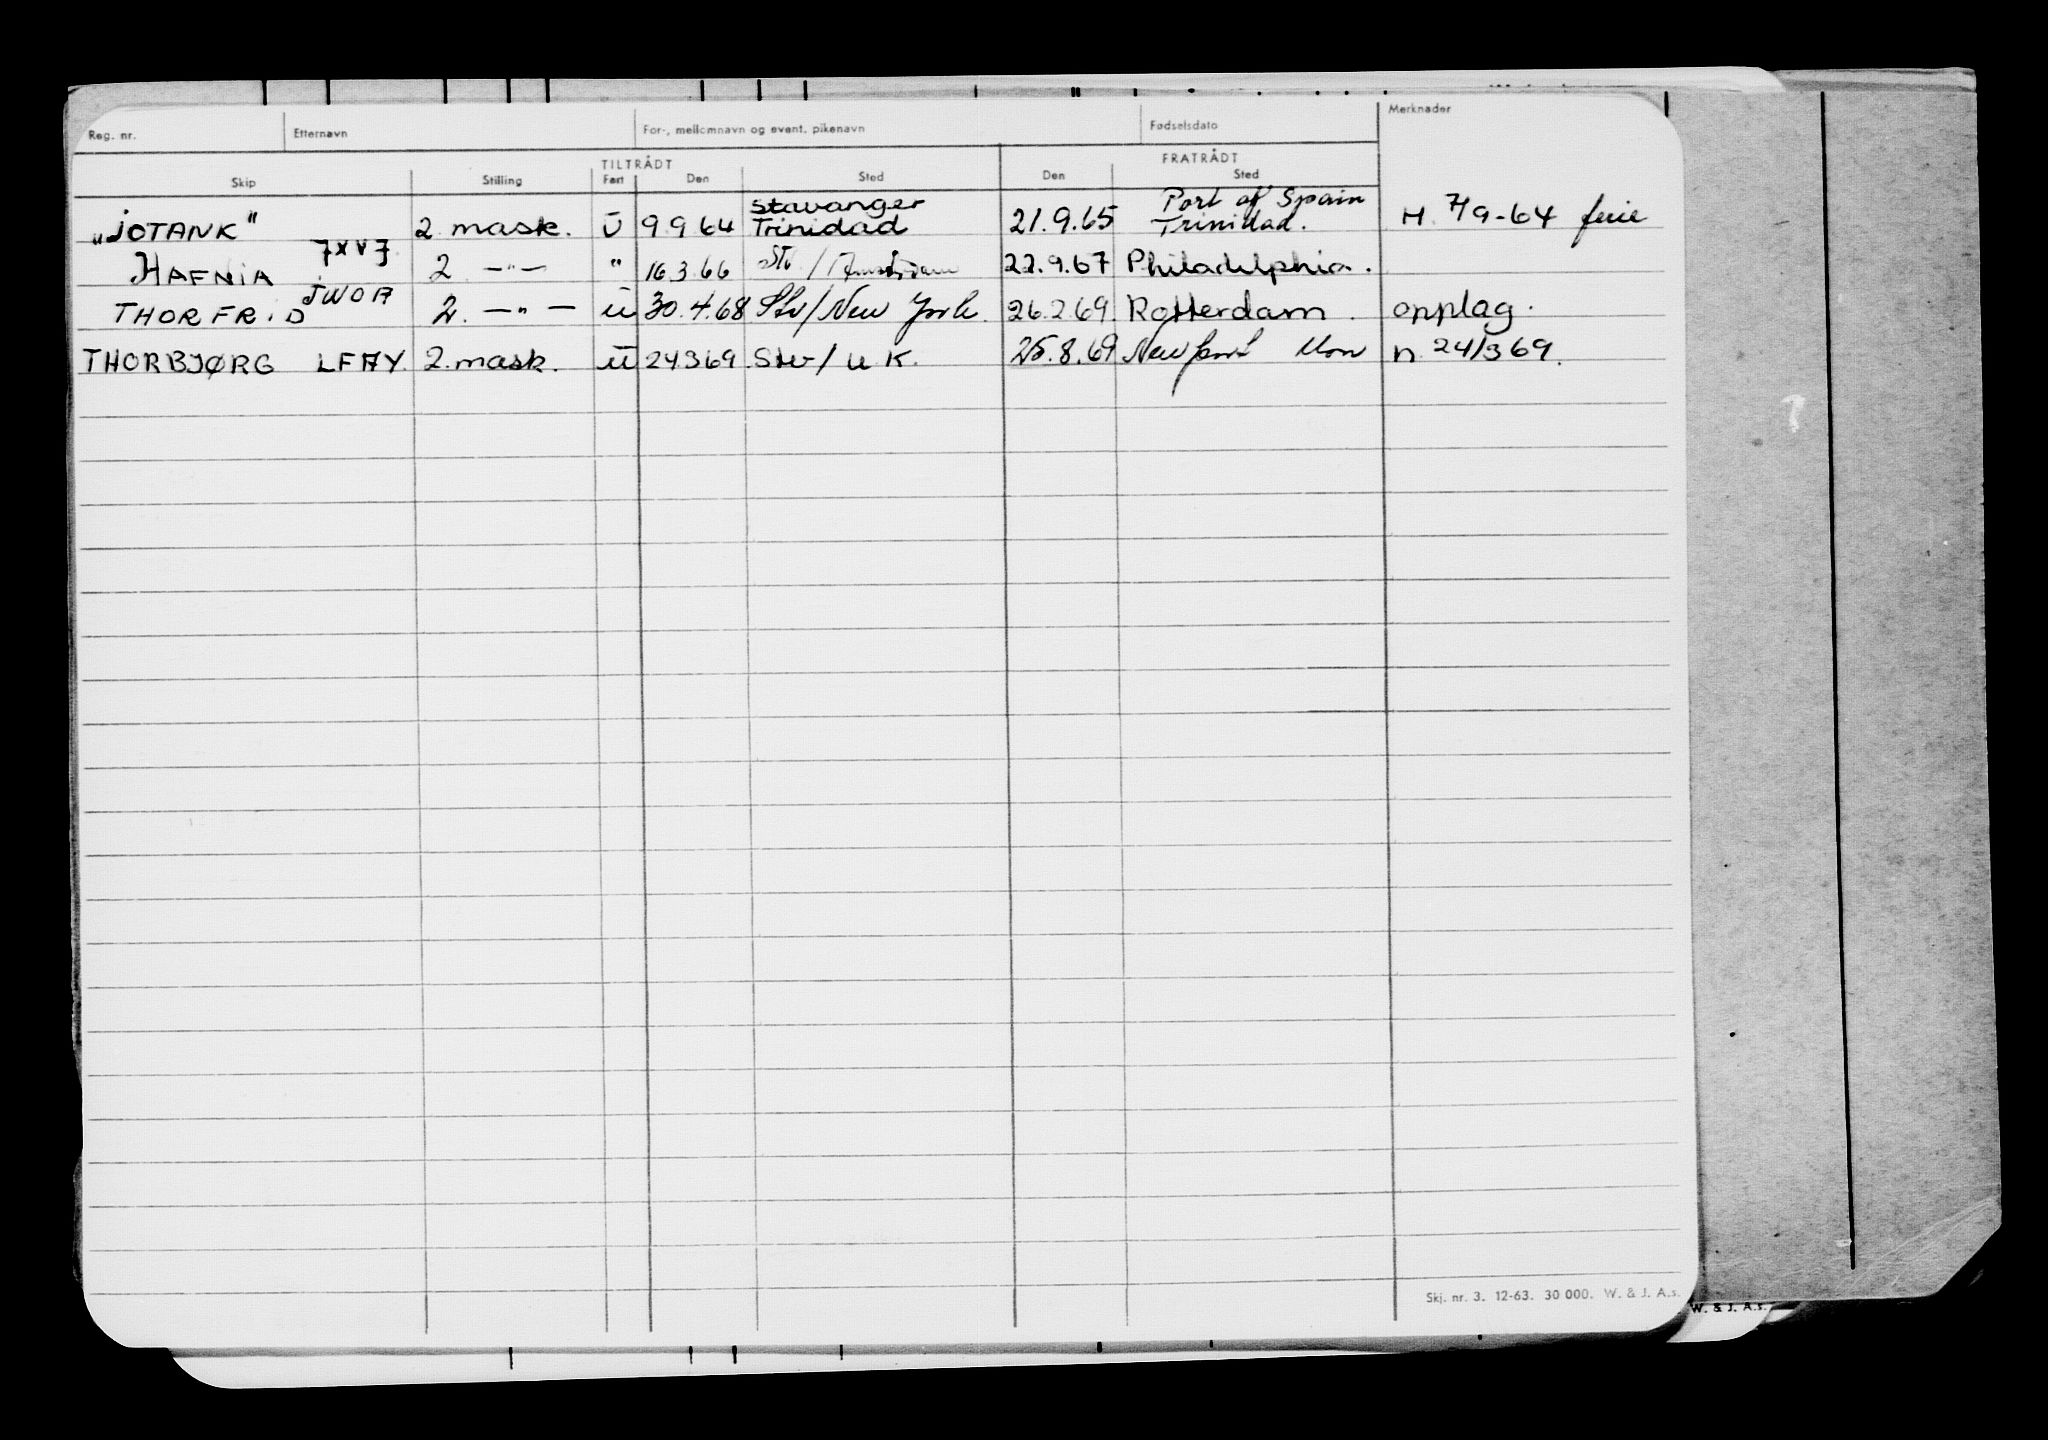 Reg. nr. Etternavn For-, mellomnavn og event. pikenavn Fødselsdato Merknader
TILTRÅDT FRATRÅDT
Skip Stilling Fart Den Sted Den Sted
Stavanger Port of Spain
"JOTANK" 2 mask. U 9 9 64 Trinidad 21.9.65 Trinidad. H. 7/9-64 ferie
JXVJ
HAFNIA 2 —"— " 16.3.66 Stv / Amsterdam 22.9.67 Philadelphia.
JWOA
THORFRID 2. —"— U 30.4.68 Stv/New York 26.2.69. Rotterdam. opplag.
THORBJØRG LFAY. 2. mask. U 24369 Stv/ U K. 25.8.69 Newport Mon n. 24/3 69.
Skj. nr. 3. 12-63. 30 000. W. & J. A.s.
W. & J. A.s.